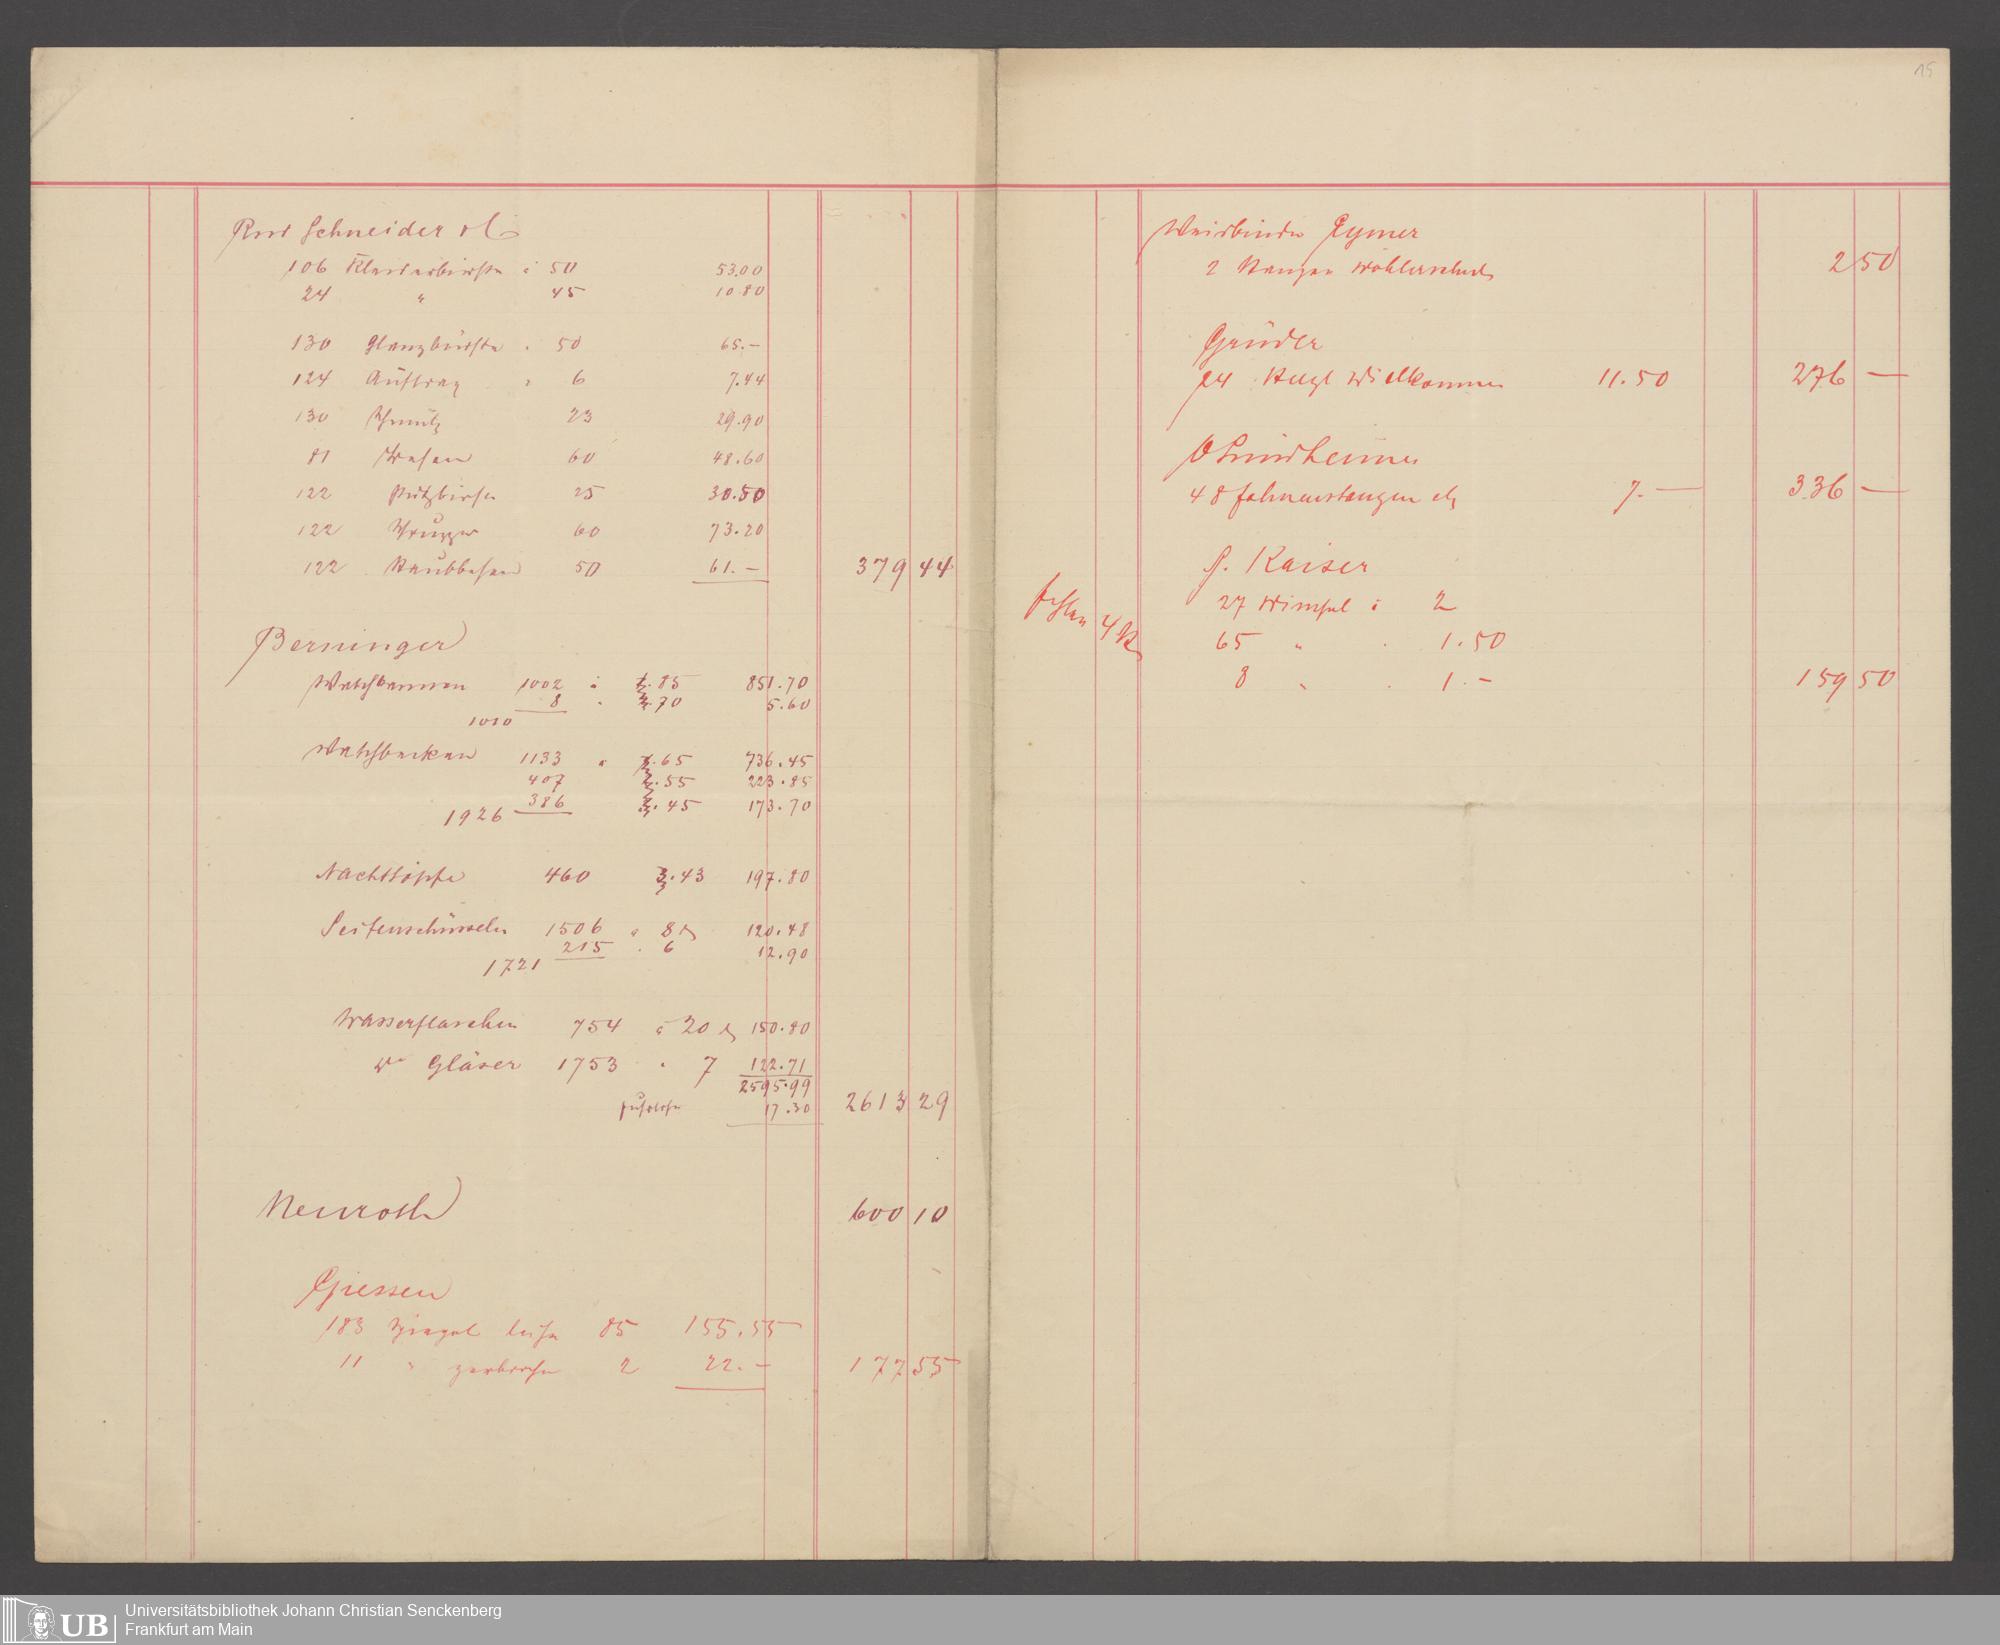 Schneider
106 Kleiderbürsten à 50 53.00
24 " 45 10.80
130 Glanzbürsten " 50 65.—
124 Auftrag " 6 7.44
130 Schmutz 23 29.90
81 Besen 60 48.60
122 25 30.50
122 Schrupper 60 73.20
122 Staubbesen 50 61.— 379 44
Berninger
Waschkannen 1002 à 85 851.70
8 " 70 5.60
1010
Waschbecken 1133 à 65 736.45
407 55 223.85
386 45 173.70
1926
Nachttöpfe 460 43 197.80
Seifenschüsseln 1506 à 8 120.48
215 " 6 12.90
1721
Wasserflaschen 754 à 20 150.80
Gläser 1753 " 7 122.71
2595.99
17.30 2613 29
Neuroth 600 10
Giessen
183 Spiegel leihen 85 155.55
11 " zerbrochen 2 22.— 177 55
15
Weisbinder Eymer
2 Stangen 2 50
Gründer
24 Willkommen 11.50 276 —
48 Fahnenstangen 7.— 336 —
P. Kaiser
27 Wimpel à 2
fehlen 4
65 " " 1.50
8 " " 1.— 159 50
UB
Universitätsbibliothek Johann Christian Senckenberg
Frankfurt am Main